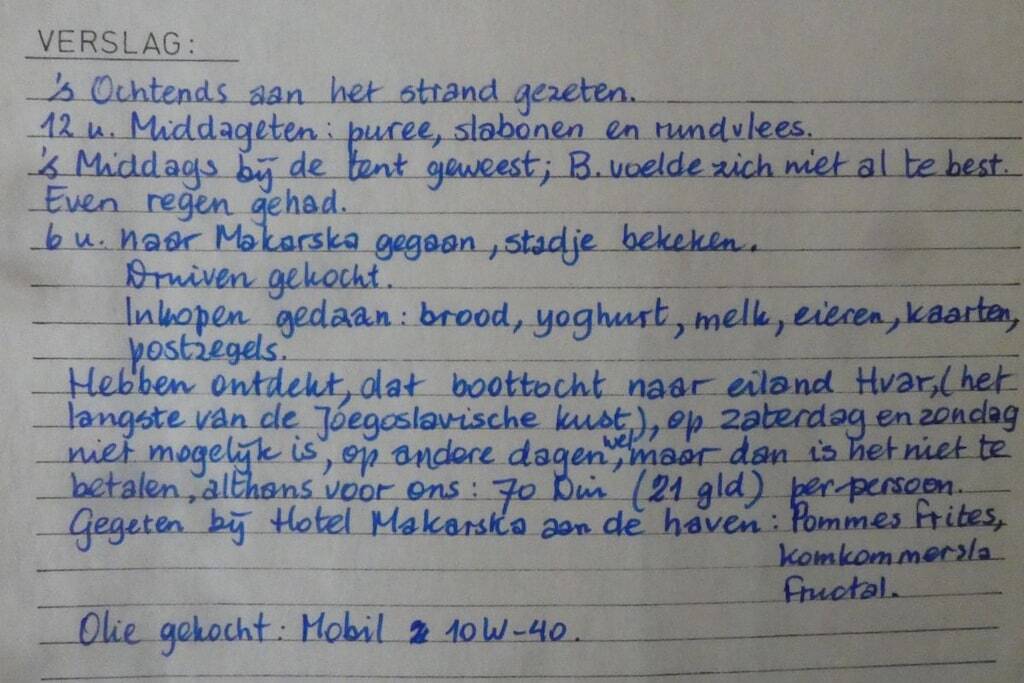 VERSLAG:
's Ochtends aan het strand gezeten.
12 u. Middageten: puree, slabonen en rundvlees.
's Middags bij de tent geweest; B. voelde zich niet al te best.
Even regen gehad.
6 u. naar Makarska gegaan, stadje bekeken.
Druiven gekocht.
Inkopen gedaan: brood, yoghurt, melk, eieren, kaarten,
postzegels.
Hebben ontdekt, dat boottocht naar eiland Hvar, (het
langste van de Joegoslavische kust,), op zaterdag en zondag
niet mogelijk is, op andere dagen wel, maar dan is het niet te
betalen, althans voor ons: 70 Din (21 gld) per persoon.
Gegeten bij Hotel Makarska aan de haven: Pommes frites,
komkommersla
fructal.
Olie gekocht: Mobil 10W-40.